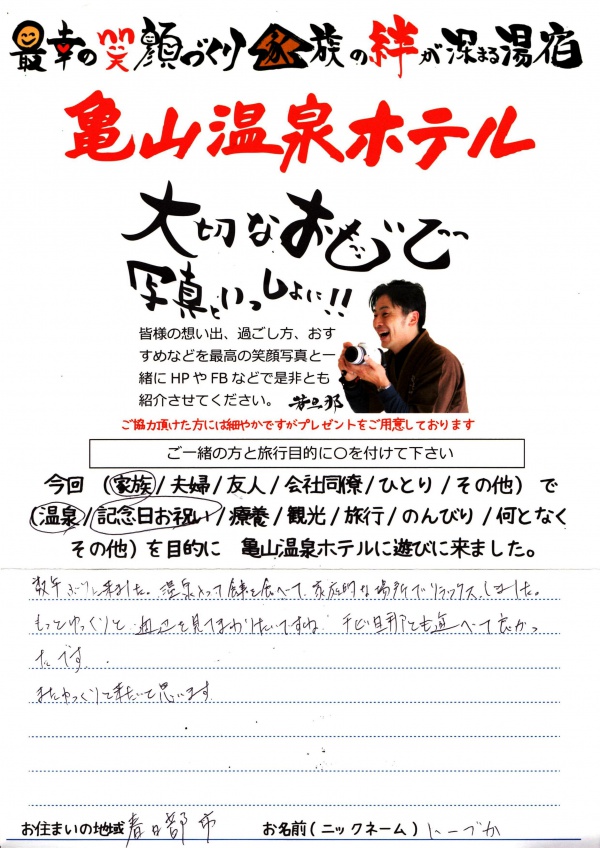 最幸の笑顔づくり家族の絆が深まる湯宿
亀山温泉ホテル
大切なおもいで
写真といっしょに!!
皆様の想い出、過ごし方、おす
すめなどを最高の笑顔写真と一
緒にHPやFBなどで是非とも
紹介させてください。 若旦那
ご協力頂けた方には細やかですがプレゼントをご用意しております
ご一緒の方と旅行目的に○を付けて下さい
今回(家族/夫婦/友人/会社同僚/ひとり/その他)で
(温泉/記念日お祝い/療養/観光/旅行/のんびり/何となく
その他)を目的に 亀山温泉ホテルに遊びに来ました。
数年ぶりに来ました。温泉入って食事を食べて、家庭的な場所でリラックスしました。
もっとゆっくりと周辺を見てまわりたいですね
チビ旦那とも遊べて良かっ
たです。
またゆっくりと来たいと思います
お住まいの地域 春日部市 お名前(ニックネーム)